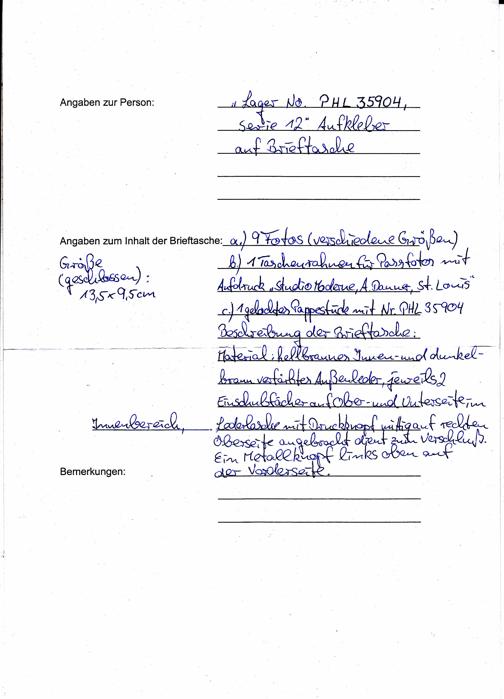 Angaben zur Person:
"Lager No. PHL 35904,
Serie 12" Aufkleber
auf Brieftasche
Angaben zum Inhalt der Brieftasche: a.) 9 Fotos (verschiedene Größen)
Größe
(geschlossen):
13,5 x 9,5cm
b.) 1 Taschenrahmen für Passfotos mit
Aufdruck "Studio Moderne, A. Danner, St. Louis"
c.) 1 gelochtes Pappestück mit Nr. PHL 35904
Beschreibung der Brieftasche:
Material: hellbraunes Innen- und dunkel-
braun verfärbtes Außenleder, jeweils 2
Einschubfächer auf Ober- und Unterseite im
Innenbereich, Lederlasche mit Druckknopf mittig auf rechten
Oberseite angebracht dient zum Verschluß.
Ein Metallknopf links oben auf
der Vorderseite.
Bemerkungen: